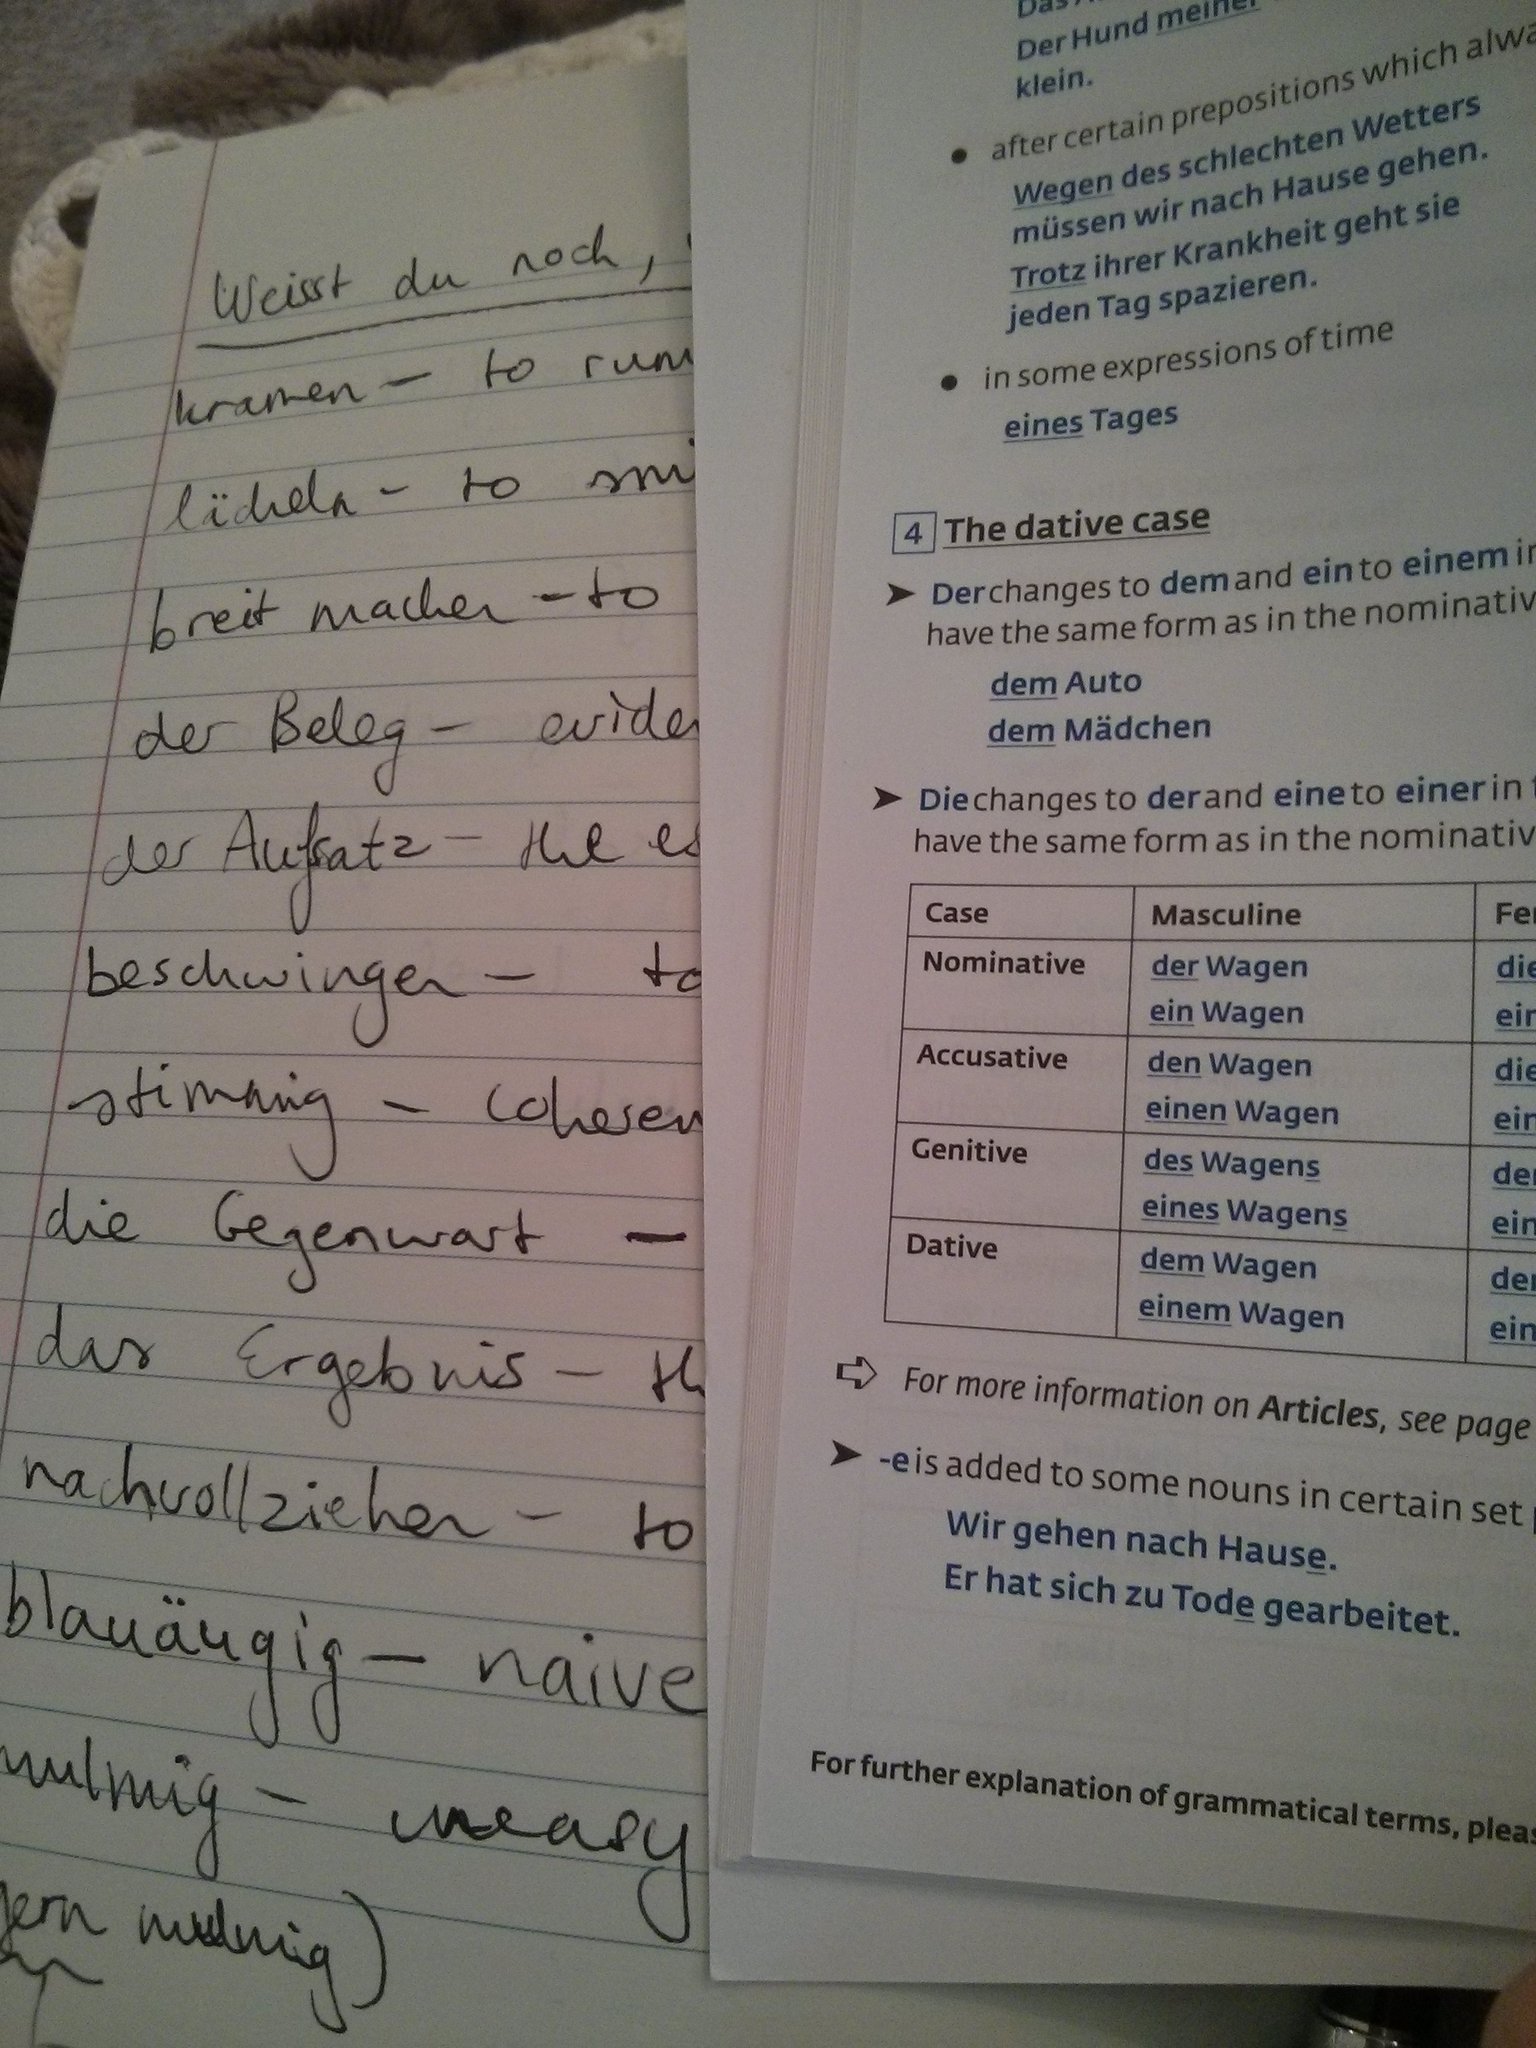 Weisst du noch,
kramen – to rum
lächeln – to smi
breit machen – to
der Beleg – eviden
der Aufsatz – the es
beschwingen – to
stimmig – coheren
die Gegenwart –
das Ergebnis – th
nachvollziehen – to
blauäugig – naive
mulmig – uneasy
gern mulmig)
Der Hund meiner
klein.
• after certain prepositions which alwa
Wegen des schlechten Wetters
müssen wir nach Hause gehen.
Trotz ihrer Krankheit geht sie
jeden Tag spazieren.
• in some expressions of time
eines Tages
4 The dative case
➤ Der changes to dem and ein to einem in
have the same form as in the nominativ
dem Auto
dem Mädchen
➤ Die changes to der and eine to einer in t
have the same form as in the nominativ
Case Masculine Fe
Nominative der Wagen die
ein Wagen ein
Accusative den Wagen die
einen Wagen ein
Genitive des Wagens der
eines Wagens ein
Dative dem Wagen der
einem Wagen ein
⇨ For more information on Articles, see page
➤ -e is added to some nouns in certain set p
Wir gehen nach Hause.
Er hat sich zu Tode gearbeitet.
For further explanation of grammatical terms, pleas